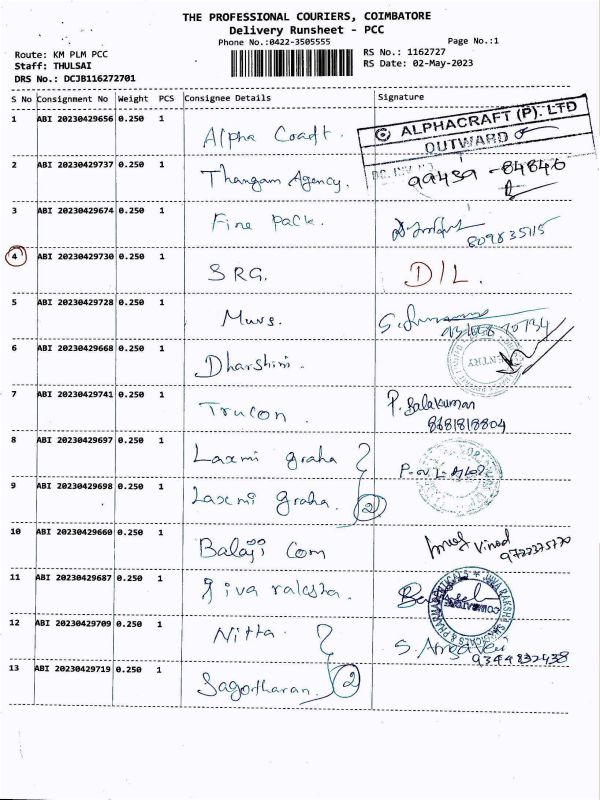 THE PROFESSIONAL COURIERS, COIMBATORE
Delivery Runsheet - PCC
Phone No.:0422-3505555
Page No.:1
Route: KM PLM PCC
RS No.: 1162727
Staff: THULSAI
RS Date: 02-May-2023
DRS No.: DCJB116272701
S No Consignment No Weight PCS Consignee Details Signature
1 ABI 20230429656 0.250 1 Alpha
© ALPHACRAFT (P). LTD
OUTWARD
2 ABI 20230429737 0.250 1 Thangam Agency.
99439 - 84846
3 ABI 20230429674 0.250 1 Fine pack.
809835115
4 ABI 20230429730 0.250 1 SRG. D/L.
5 ABI 20230429728 0.250 1
6 ABI 20230429668 0.250 1 Dharshini.
ENTRY
7 ABI 20230429741 0.250 1 Trucon. P. Balakumar
8681818804
8 ABI 20230429697 0.250 1 Laxmi graha
9 ABI 20230429698 0.250 1 Laxmi graha. 2
10 ABI 20230429660 0.250 1 Balaji Com Vinod
11 ABI 20230429687 0.250 1 Jiva raksha.
JIVA RAKSHA SURGICALS & PHARMACEUTICALS
COIMBATORE
12 ABI 20230429709 0.250 1 Nitta.
9344832438
13 ABI 20230429719 0.250 1 2